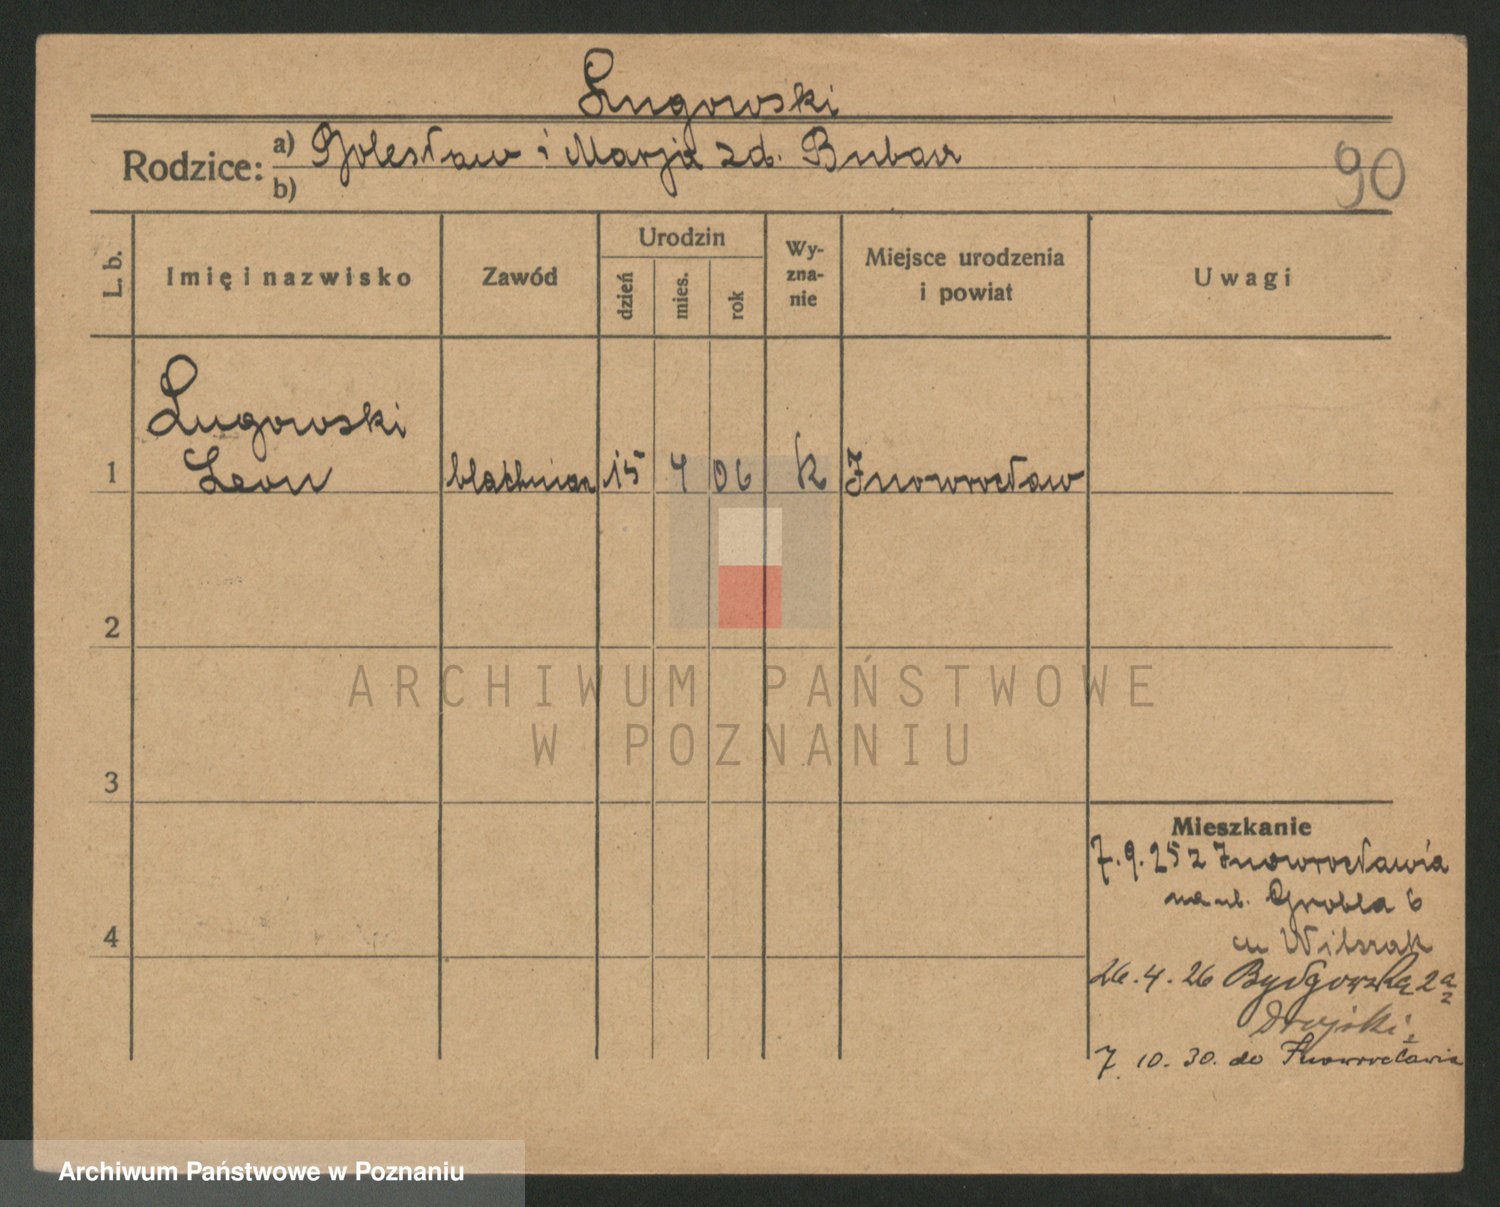 Lugowski
Rodzice: a) Bolesław i Marja zd. Bubar
b)
90
L. b.
Imię i nazwisko
Zawód
Urodzin
dzień
mies.
rok
Wy-
zna-
nie
Miejsce urodzenia
i powiat
Uwagi
Lugowski
1 Leon blachniarz 15 4 06 k Inowrocław
2
ARCHIWUM PAŃSTWOWE
W POZNANIU
3
Mieszkanie
7.9.25 z Inowrocławia
na ul. Grobla 6
4
26.4.26 Bydgowska 2a
7 10. 30. do Inowrocławia
Archiwum Państwowe w Poznaniu